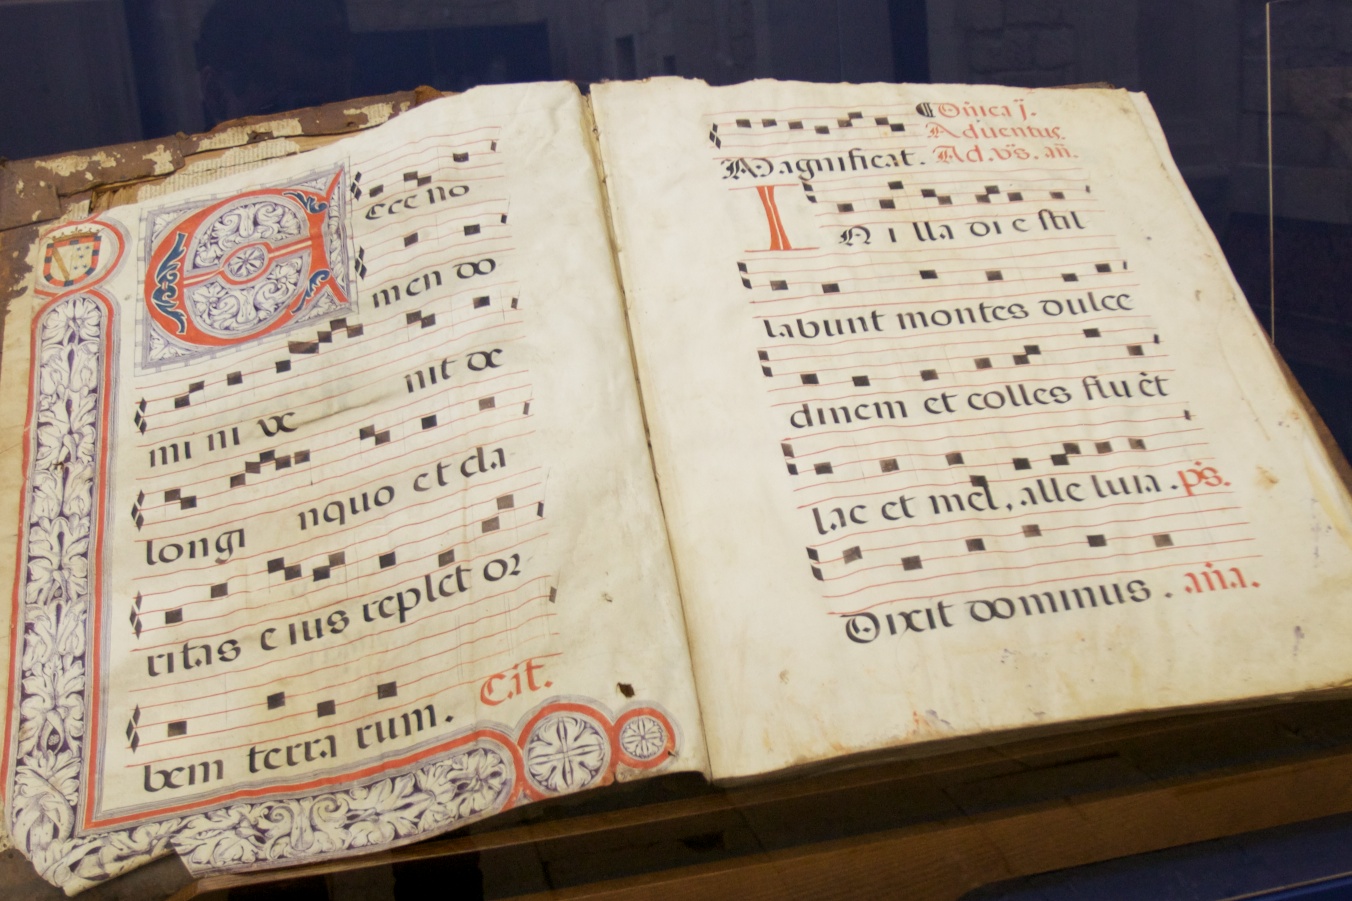 Ecce no
men do
mi ni ve nit de
longi nquo et cla
ritas e ius replet or
bem terra rum. C.it.
Magnificat.
Dñica j.
Aduentus.
Ad. vs. añ.
IN i lla di e stil
labunt montes dulce
dinem et colles flu ēt
lac et mel, alle luia. ps.
Dixit dominus. aña.